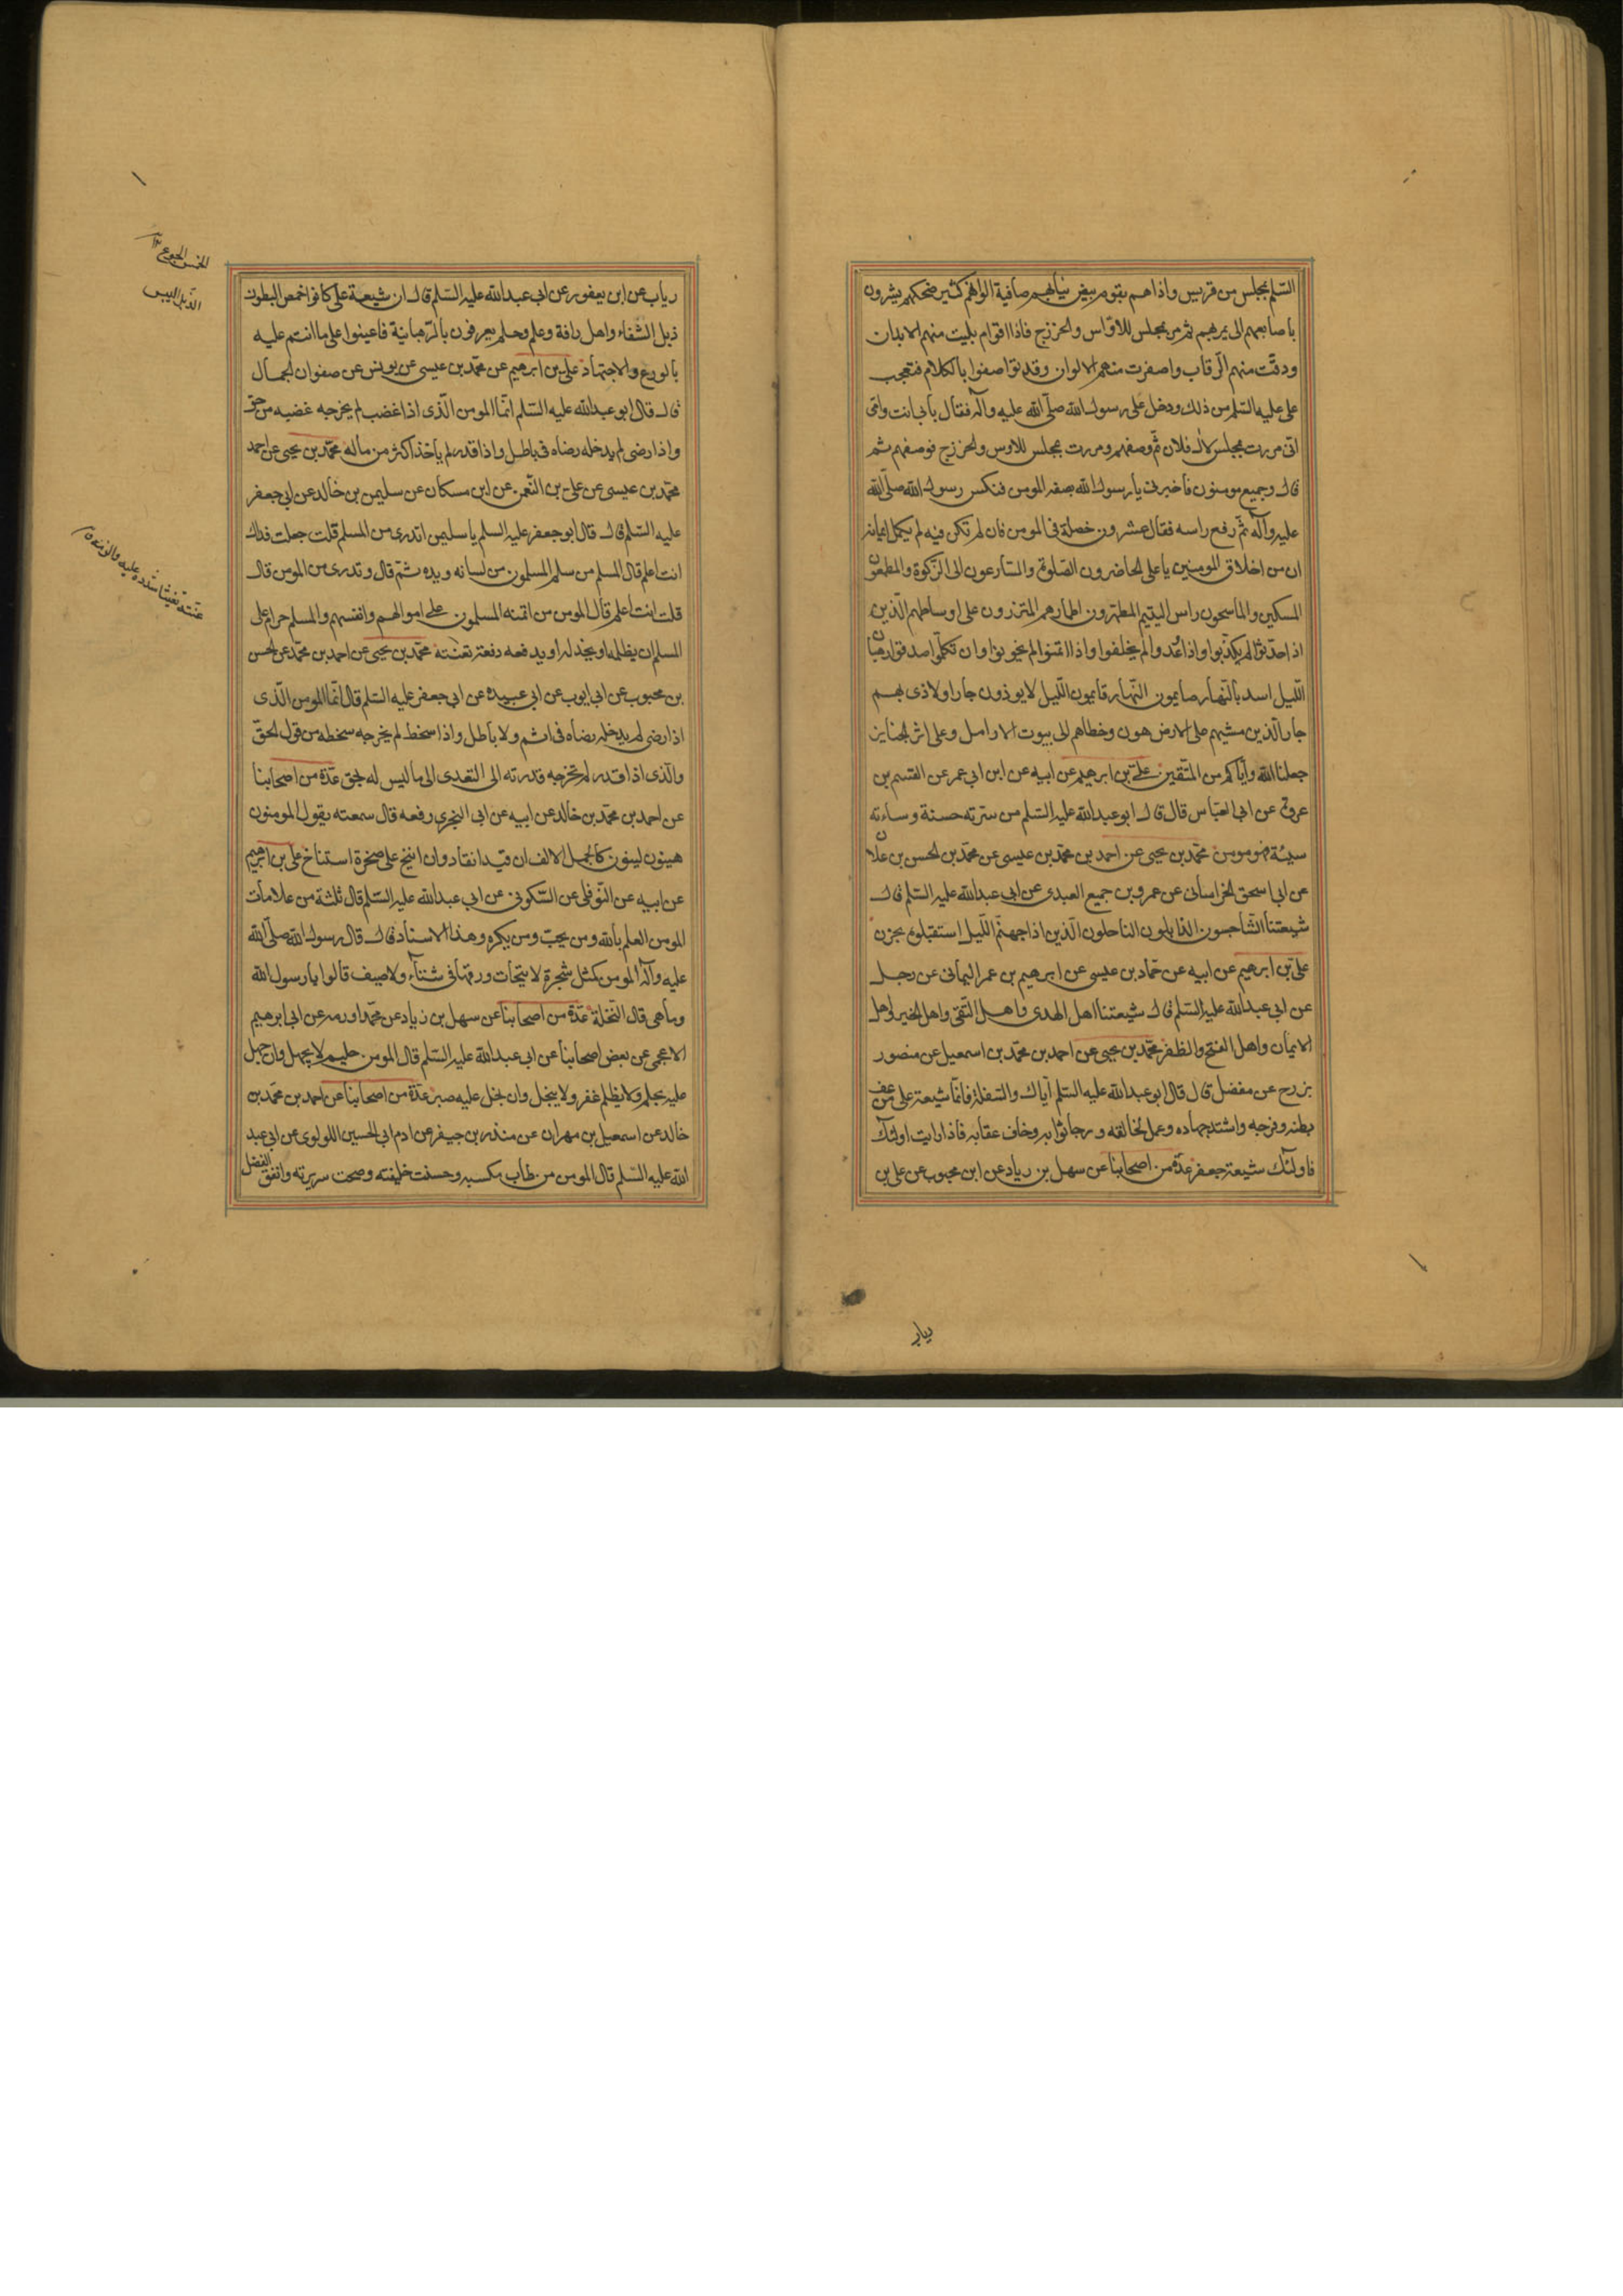 السّلم بمجلس من قريس واذا هم بقوم بيض ثيابهم صافية الوانهم كثير ضحكهم يشيرون
باصابعهم الى من يمر بهم ثم مر بمجلس للاوس والخزرج فاذا اقوام بليت منهم الابدان
ودقّت منهم الرّقاب واصفرت منهم الالوان وقد تواصفوا بالكلام فتعجب
على عليه السّلم من ذلك ودخل على رسول الله صلّى الله عليه وآله فقال بابى انت وامّى
انّى مررت بمجلس لال فلان ثمّ وصفهم ومررت بمجلس للاوس والخزرج فوصفهم ثم
قال وجميع مومنون فاخبرنى يا رسول الله بصفه المومن فنكس رسول الله صلّى الله
عليه وآله ثمّ رفع راسه فقال عشرون خصلة فى المومن فان لم تكن فيه لم يكمل ايمانه
ان من اخلاق المومنين يا على الحاضرون الصّلوة والسّارعون الى الزّكوة والمطعمون
المسكين والماسحون راس اليتيم المطهّرون اطمارهم المتزرون على اوساطهم الّذين
اذا حدّثوا لم يكذّبوا واذا وعدوا لم يخلفوا واذا ائتمنوا لم يخونوا وان تكلّموا صدقوا رهبان
اللّيل اسد بالنّهار صايمون النّهار قايمون اللّيل لا يوذون جارا ولا يتاذى بهم
جار الّذين مشيهم على الارض هون وخطاهم الى بيوت الارامل وعلى اثر الجنايز
جعلنا الله وايّاكم من المتّقين علىّ بن ابرهيم عن ابيه عن ابن ابى عمر عن القسم بن
عروة عن ابى العبّاس قال قال ابو عبدالله عليه السّلم من سرّته حسنة وساءته
سيئة فهو مومن محمّد بن يحيى عن احمد بن محمّد بن عيسى عن محمّد بن الحسن بن علان
عن ابى اسحق الخراسانى عن عمرو بن جميع العبدى عن ابى عبدالله عليه السّلم قال
شيعتنا الشّاحبون الذّابلون الناحلون الّذين اذا جنهم اللّيل استقبلوه بحزن
علىّ بن ابرهيم عن ابيه عن حمّاد بن عيسى عن ابرهيم بن عمر اليمانى عن رجل
عن ابى عبدالله عليه السّلم قال شيعتنا اهل الهدى واهل التّقى واهل الخير واهل
الايمان واهل الفتح والظفر محمّد بن يحيى عن احمد بن محمّد بن اسمعيل عن منصور
بزرج عن مفضل قال قال ابو عبدالله عليه السّلم ايّاك والسّفلة فانّما شيعة على من عف
بطنه وفرجه واشتد جهاده وعمل لخالقه ورجا ثوابه وخاف عقابه فاذا رايت اولئك
فاولئك شيعة جعفر عدّة من اصحابنا عن سهل بن زياد عن ابن محبوب عن على بن
رياب
رياب عن ابن يعفور عن ابى عبدالله عليه السّلم قال ان شيعة على كانوا خمص البطون
ذبل الشفاء واهل رافة وعلم وحلم يعرفون بالرّهبانية فاعينوا على ما انتم عليه
بالورع والاجتهاد علىّ بن ابرهيم عن محمّد بن عيسى عن يونس عن صفوان الجمال
قال قال ابو عبدالله عليه السّلم انّما المومن الّذى اذا غضب لم يخرجه غضبه من حق
واذا رضى لم يدخله رضاه فى باطل واذا قدر لم ياخذ اكثر من ماله محمّد بن يحيى عن احمد
محمّد بن عيسى عن على بن النّعمن عن ابن مسكان عن سليمن بن خالد عن ابى جعفر
عليه السّلم قال قال ابو جعفر عليه السلم يا سليمن اتدرى من المسلم قلت جعلت فداك
انت اعلم قال المسلم من سلم المسلمون من لسانه ويده ثمّ قال وتدرى من المومن قال
قلت انت اعلم قال المومن من ائتمنه المسلمون على اموالهم وانفسهم والمسلم حرام على
المسلم ان يظلمه او يخذله او يدفعه دفعة تعنته محمّد بن يحيى عن احمد بن محمّد عن الحسن
بن محبوب عن ابى ايوب عن ابى عبيدة عن ابى جعفر عليه السّلم قال انّما المومن الّذى
اذا رضى لم يدخله رضاه فى اثم ولا باطل واذا سخط لم يخرجه سخطه من قول الحقّ
والّذى اذا قدر لم تخرجه قدرته الى التعدى الى ما ليس له بحق عدّة من اصحابنا
عن احمد بن محمّد بن خالد عن ابيه عن ابى البخترى رفعه قال سمعته يقول المومنون
هينون لينون كالجمل الالف ان قيد انقاد وان انيخ على صخرة استناخ على بن ابرهيم
عن ابيه عن النّوفلى عن السّكونى عن ابى عبدالله عليه السّلم قال ثلثة من علامات
المومن العلم بالله ومن يحبّ ومن يكره وهذا الاسناد قال قال رسول الله صلّى الله
عليه وآله المومن كمثل شجرة لا يتحات ورقها فى شتاء ولا صيف قالوا يا رسول الله
وما هى قال النّخلة عدّة من اصحابنا عن سهل بن زياد عن محمّد اورمه عن ابى ابرهيم
الاعجمى عن بعض اصحابنا عن ابى عبدالله عليه السّلم قال المومن حليم لا يجهل وان جهل
عليه يحلم ولا يظلم غفر ولا يبخل وان بخل عليه صبر عدّة من اصحابنا عن احمد بن محمّد بن
خالد عن اسمعيل بن مهران عن منذر بن جيفر عن ادم ابى الحسين اللولوى عن ابى عبد
الله عليه السّلم قال المومن من طاب مكسبه وحسنت خليقته وصحت سريرته وانفق الفضل